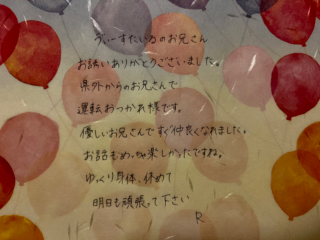 うぃーすたいるのお兄さん
お誘いありがとうございました。
県外からのお兄さんで
運転おつかれ様です。
優しいお兄さんですぐ仲良くなれました。
お話もめっちゃ楽しかったですね。
ゆっくり身体、休めて
明日も頑張って下さい
R